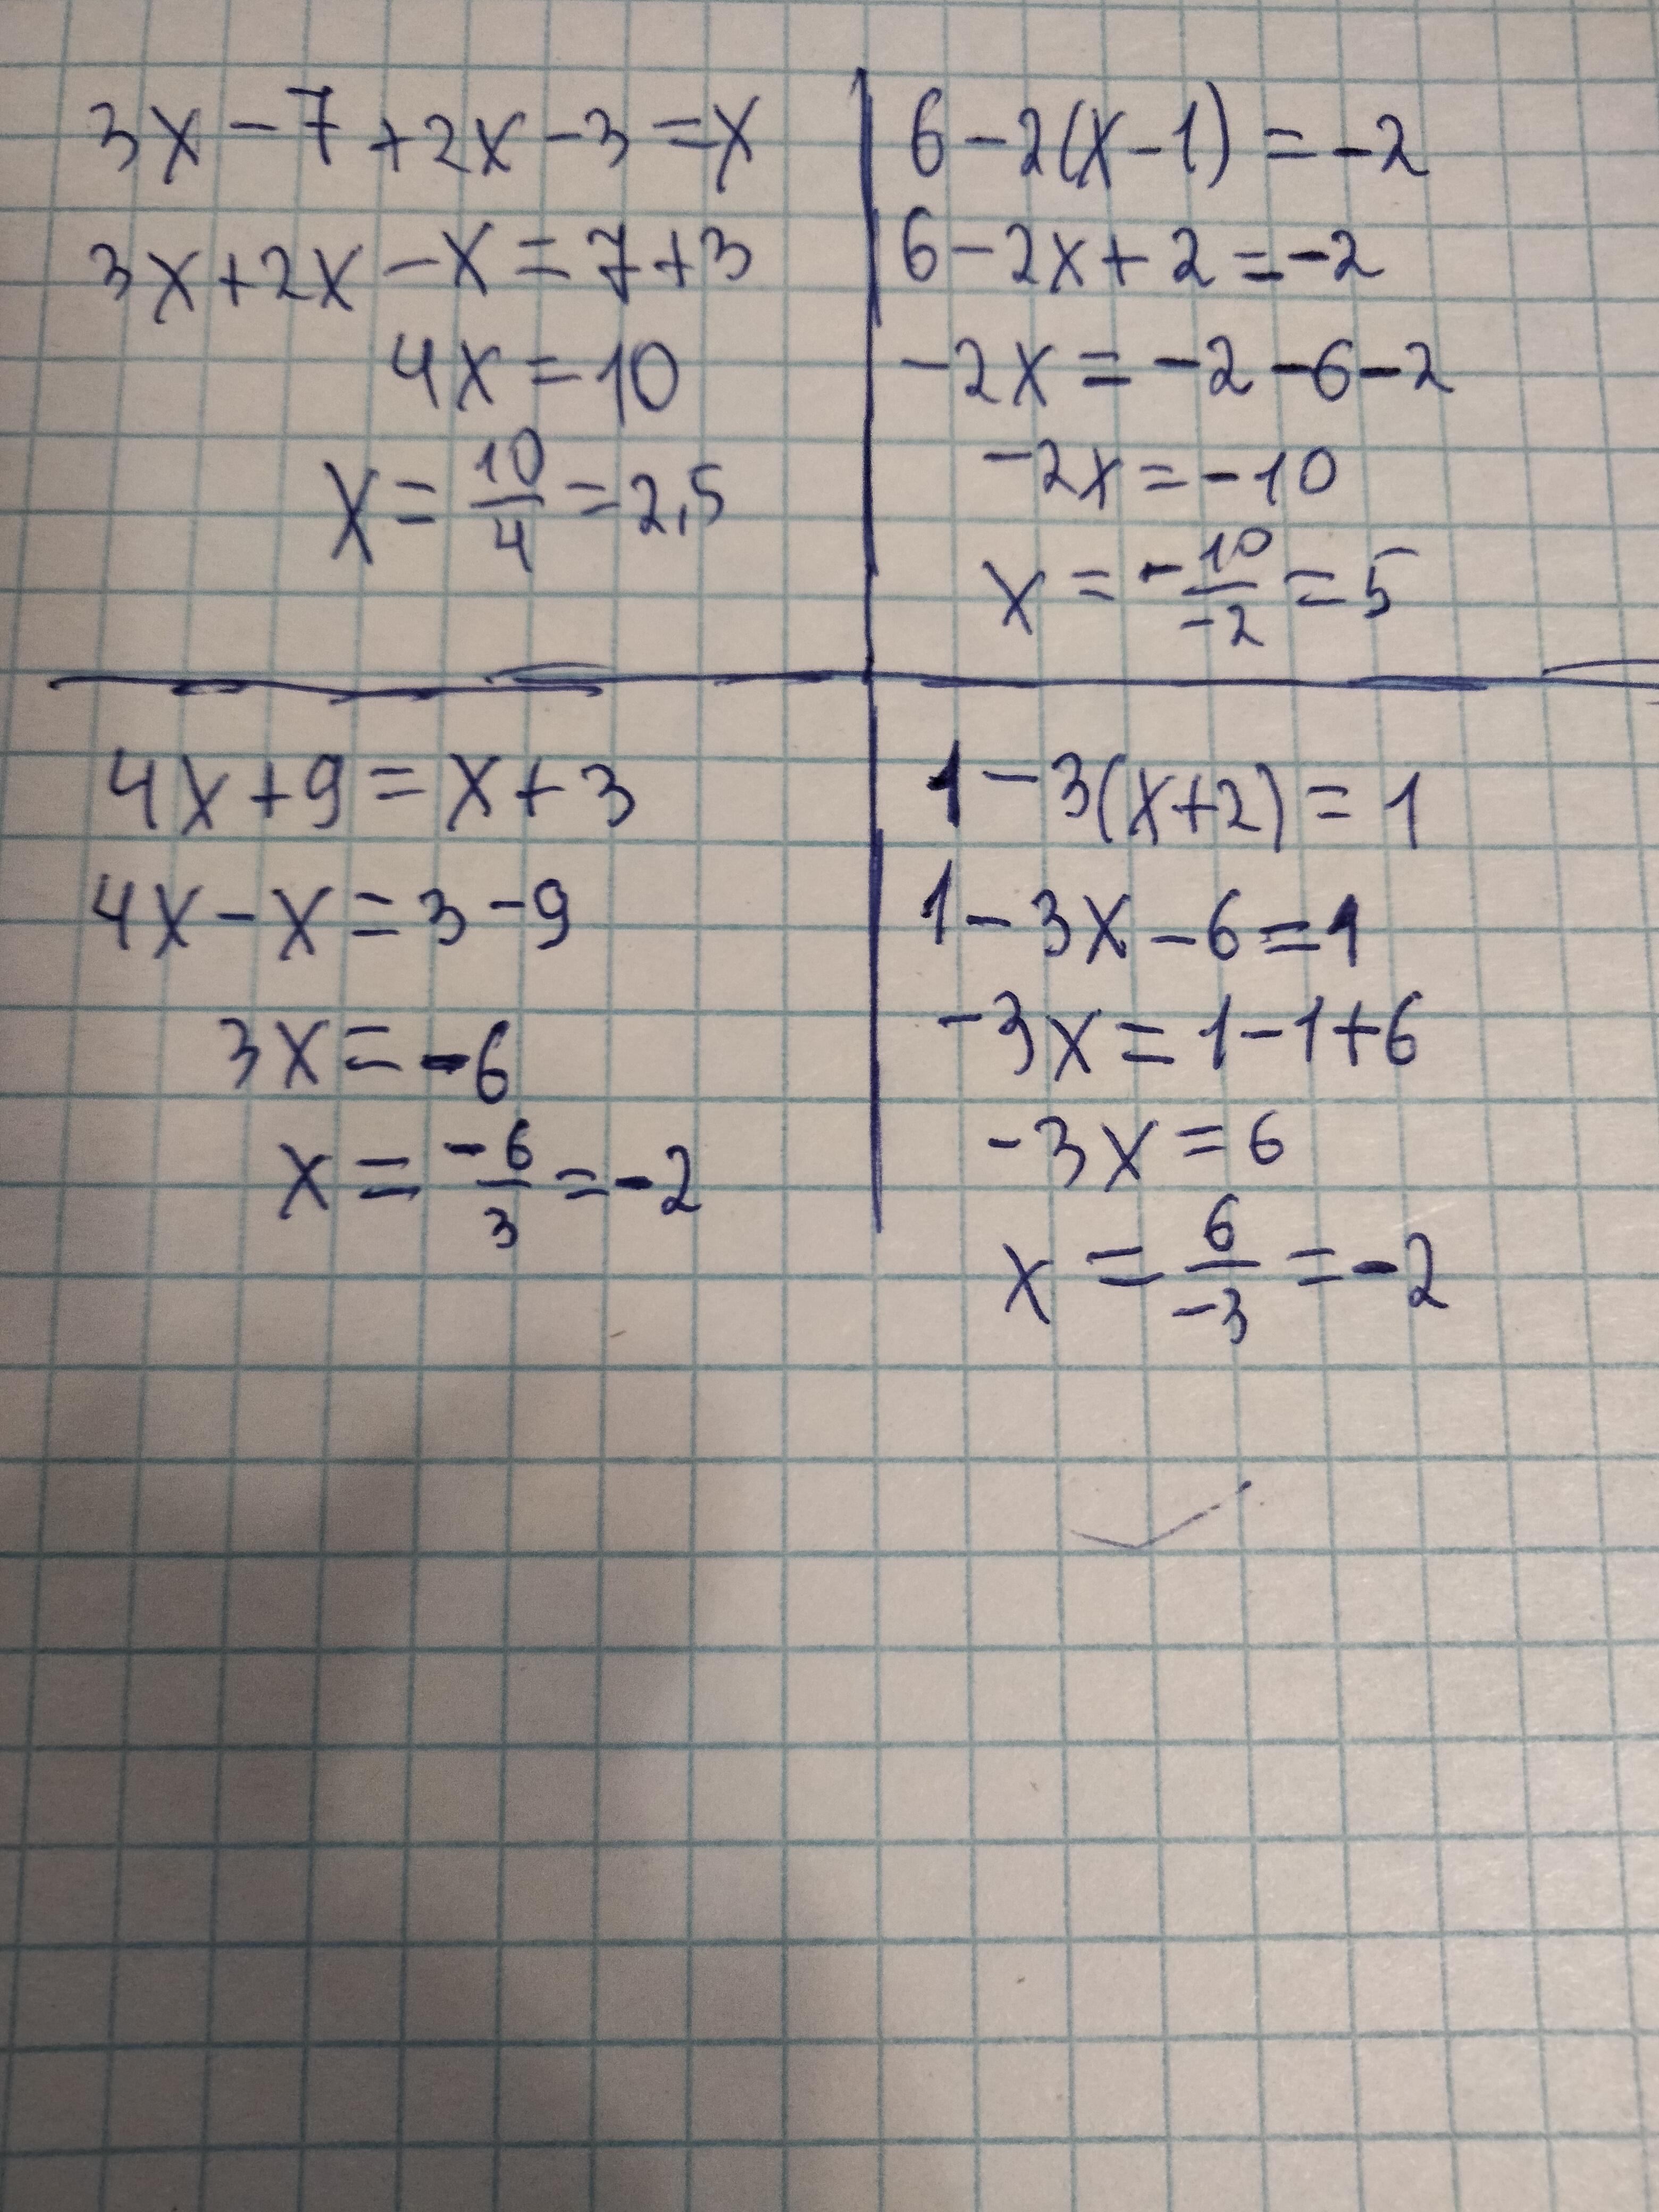 3x-7+2x-3=x
3x+2x-x=7+3
4x=10
x=10/4=2,5
6-2(x-1)=-2
6-2x+2=-2
-2x=-2-6-2
-2x=-10
x=-10/-2=5
4x+9=x+3
4x-x=3-9
3x=-6
x=-6/3=-2
1-3(x+2)=1
1-3x-6=1
-3x=1-1+6
-3x=6
x=6/-3=-2